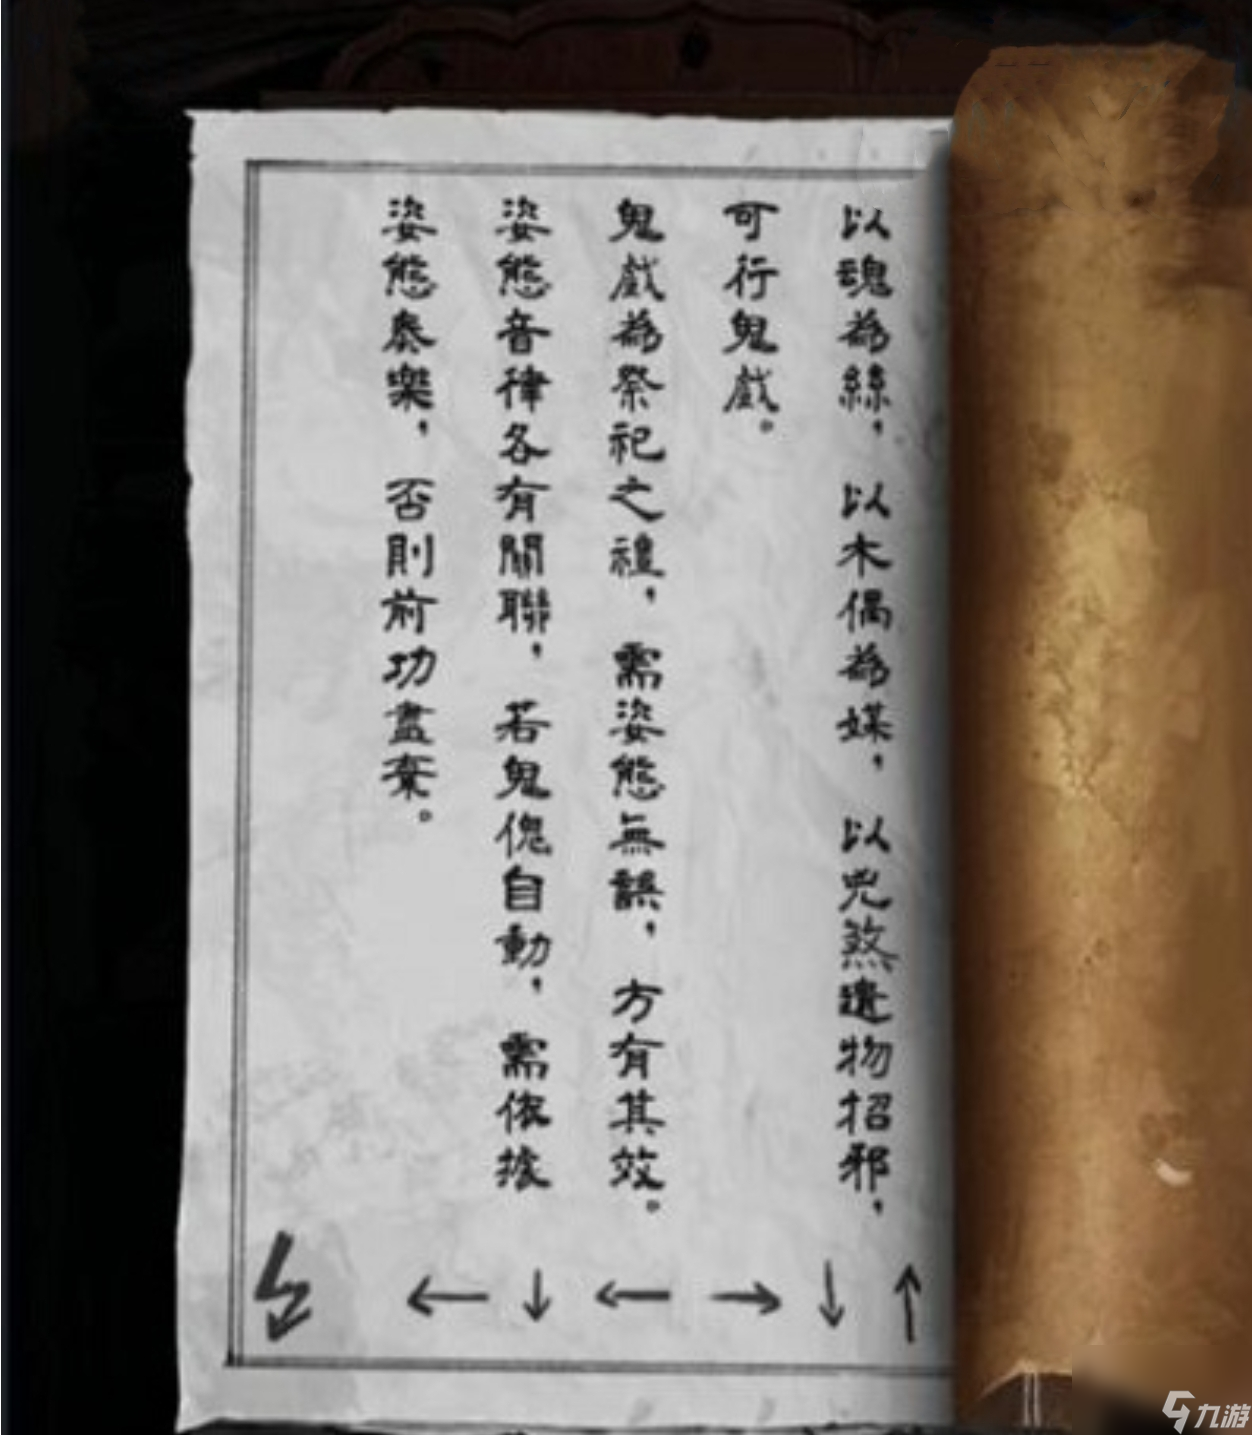 以魂為絲，以木偶為媒，以兇煞遺物招邪，
可行鬼戲。
鬼戲為祭祀之禮，需姿態無誤，方有其效。
姿態音律各有關聯，若鬼傀自動，需依據
姿態奏樂，否則前功盡棄。
↑ ↓ → ← ↓ ←
九游